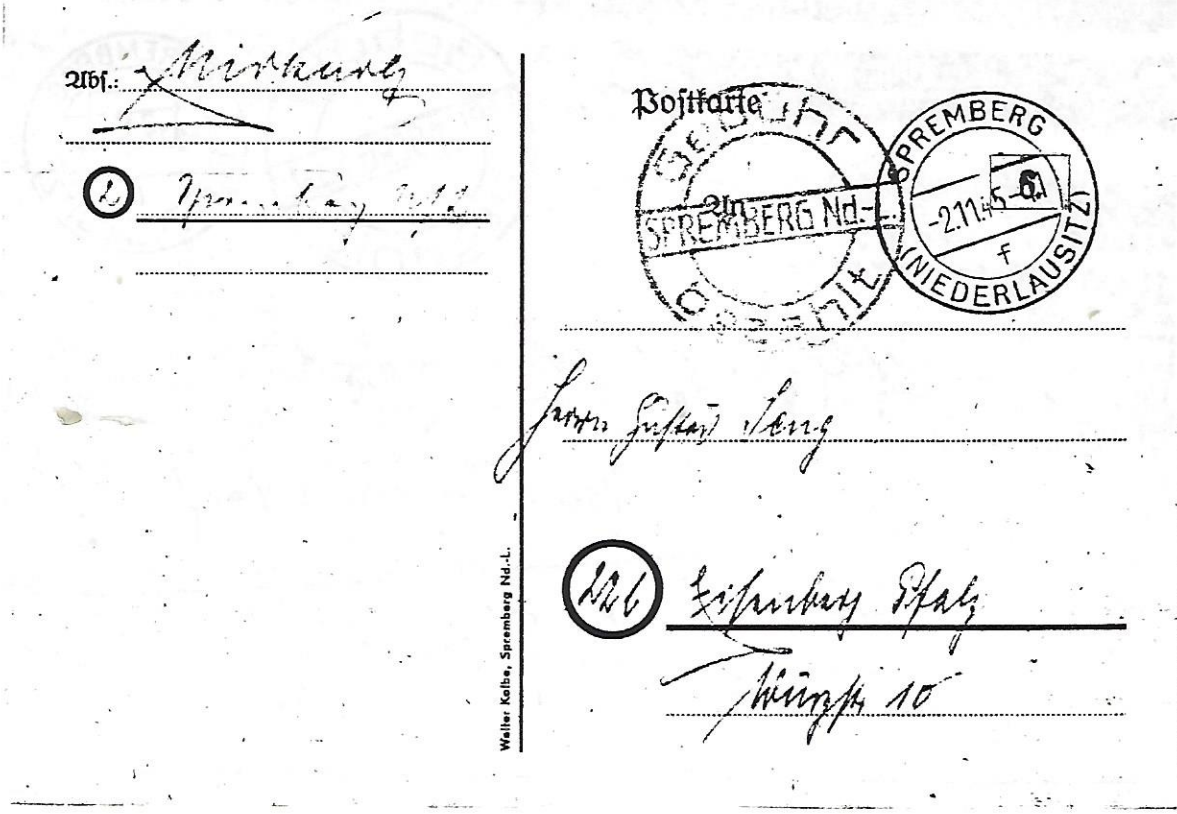 Abs.: Mirkurg
② Spremberg N/L
Postkarte
Gebühr
bezahlt
SPREMBERG Nd.-L.
An
SPREMBERG
-2.11.45-
f
(NIEDERLAUSITZ)
6
Herrn Gustav Seng
22b Eisenberg Pfalz
10
Walter Kolbe, Spremberg Nd.-L.